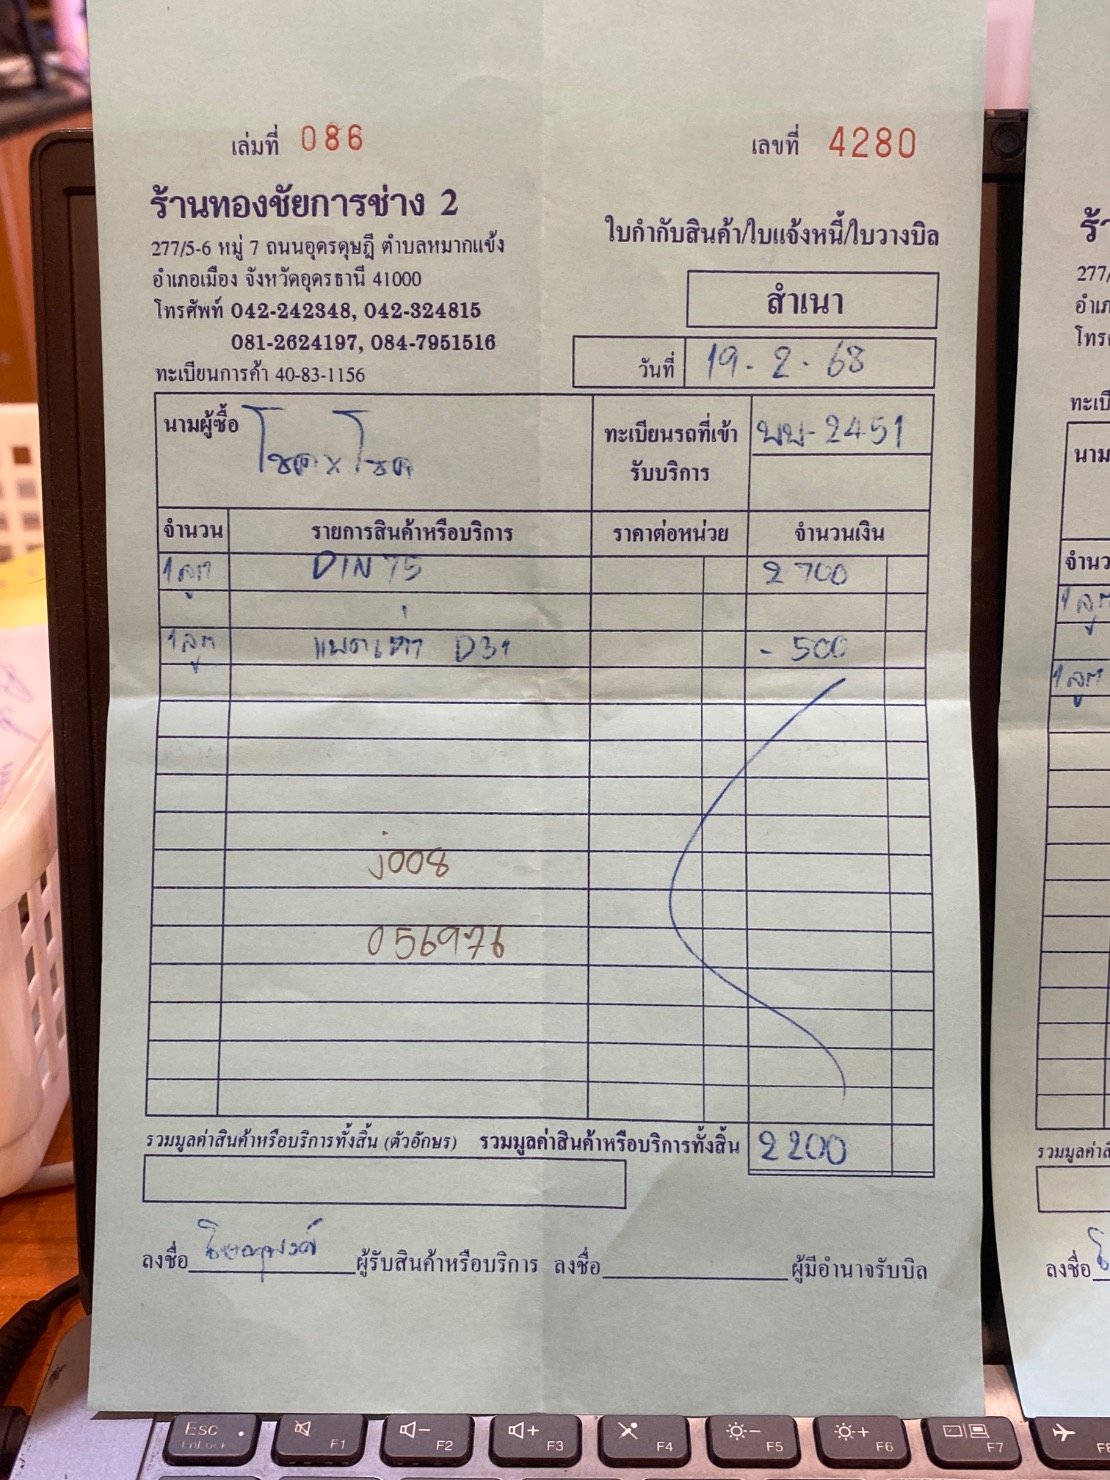 เล่มที่ 086
เลขที่ 4280
ร้านทองชัยการช่าง 2
277/5-6 หมู่ 7 ถนนอุดรดุษฎี ตำบลหมากแข้ง
อำเภอเมือง จังหวัดอุดรธานี 41000
โทรศัพท์ 042-242348, 042-324815
081-2624197, 084-7951516
ทะเบียนการค้า 40-83-1156
ใบกำกับสินค้า/ใบแจ้งหนี้/ใบวางบิล
สำเนา
วันที่ 19-2-68
นามผู้ซื้อ โชค x โชค
ทะเบียนรถที่เข้า
รับบริการ
-2451
จำนวน รายการสินค้าหรือบริการ ราคาต่อหน่วย จำนวนเงิน
1 ลูก DIN 75 2700
1 ลูก แบตเก่า D31 - 500
j008
056976
รวมมูลค่าสินค้าหรือบริการทั้งสิ้น (ตัวอักษร) รวมมูลค่าสินค้าหรือบริการทั้งสิ้น 2200
ลงชื่อ ผู้รับสินค้าหรือบริการ ลงชื่อ ผู้มีอำนาจรับบิล
277/
ทะเบี
นาม
จำนว
1 ลูก
1 ลูก
รวมมูลค่าสิ
ลงชื่อ
Esc
FnLock
F1
F2
F3
F4
F5
F6
F7
F8